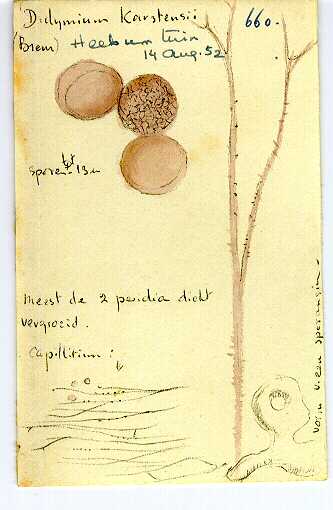 Didymium Karstensii 660.
(Brem) Heebum tuin
14 Aug. 52
sporen tot 13 u
meest de 2 peridia dicht
vergroeid.
Capillitium:
vorm v. een sporangium.